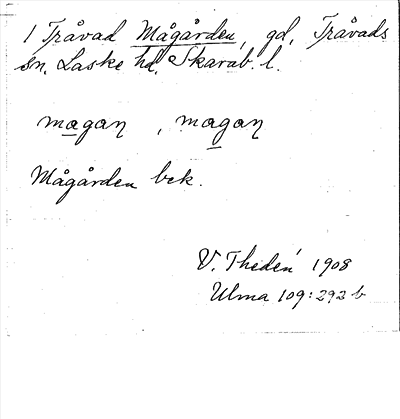 1 Tråvad Mågården, gd, Tråvads
sn. Laske hd. Skarab. l.
magan, magan
Mågården bek.
V. Thedén 1908
Ulma 109:292 b